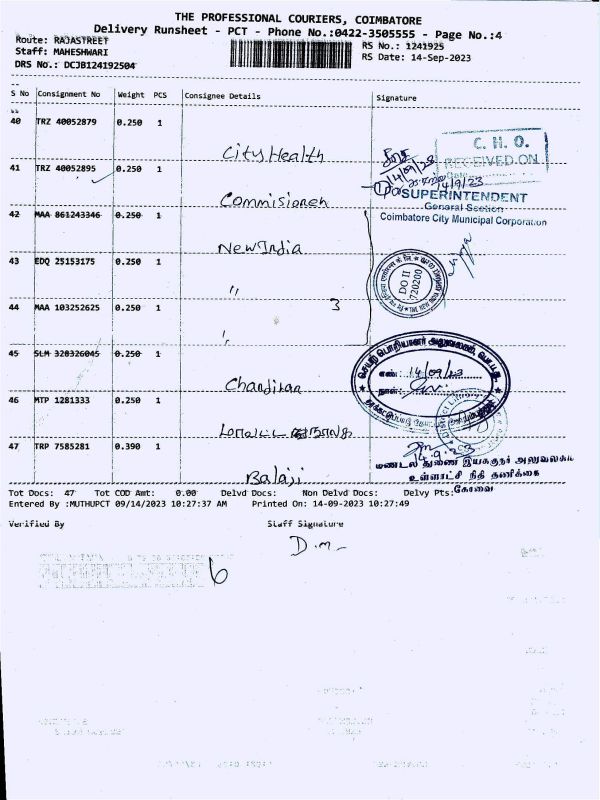 THE PROFESSIONAL COURIERS, COIMBATORE
Delivery Runsheet - PCT - Phone No.:0422-3505555 - Page No.:4
Route: RAJASTREET
RS No.: 1241925
Staff: MAHESHWARI
RS Date: 14-Sep-2023
DRS No.: DCJB124192504
S No Consignment No Weight PCS Consignee Details Signature
40 TRZ 40052879 0.250 1
City Health
C. H. O.
RECEIVED ON
14/09/23
14/9/23
41 TRZ 40052895 0.250 1
Commisioner
SUPERINTENDENT
General Section
Coimbatore City Municipal Corporation
42 MAA 861243346 0.250 1
New India
43 EDQ 25153175 0.250 1
"
DO II
720200
44 MAA 103252625 0.250 1
3
45 SLM 320326045 0.250 1
செயற் பொறியாளர் அலுவலகம்
எண்: 14/09/23
நாள்:
46 MTP 1281333 0.250 1
மாவட்ட
47 TRP 7585281 0.390 1
Balaji
14.9.23
மண்டல துணை இயக்குநர் அலுவலகம்
உள்ளாட்சி நிதி தணிக்கை
கோவை
Tot Docs: 47 Tot COD Amt: 0.00 Delvd Docs: Non Delvd Docs: Delvy Pts:
Entered By :MUTHUPCT 09/14/2023 10:27:37 AM Printed On: 14-09-2023 10:27:49
Verified By Staff Signature
6